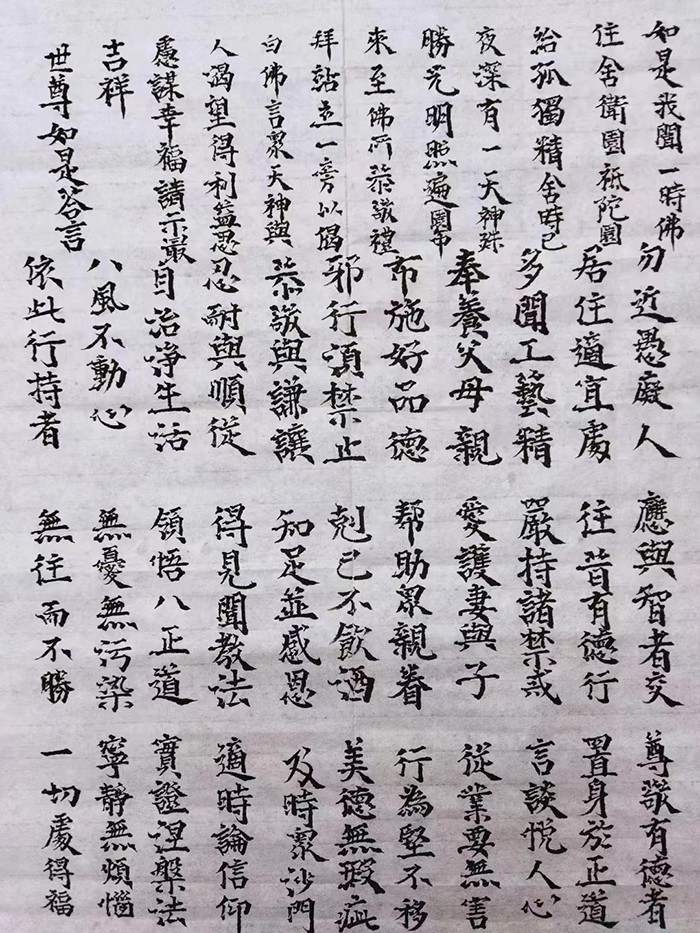 如是我聞一時佛
住舍衛園祗陀園
給孤獨精舍時已
夜深有一天神殊
勝光明照遍園中
來至佛所恭敬禮
拜站立一旁以偈
白佛言眾天神與
人渴望得利益思
慮謀幸福請示最
吉祥
世尊如是答言
勿近愚癡人
應與智者交
尊敬有德者
居住適宜處
往昔有德行
置身於正道
多聞工藝精
嚴持諸禁戒
言談悅人心
奉養父母親
愛護妻與子
從業要無害
布施好品德
幫助眾親眷
行為堅不移
邪行須禁止
剋己不飲酒
美德無瑕疵
恭敬與謙讓
知足並感恩
及時眾沙門
忍耐與順從
得見聞教法
適時論信仰
自治淨生活
領悟八正道
實證涅槃法
八風不動心
無憂無污染
寧靜無煩惱
依此行持者
無往而不勝
一切處得福